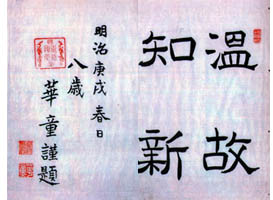 温故
知新
明治庚戌春日
八歳
華童謹題